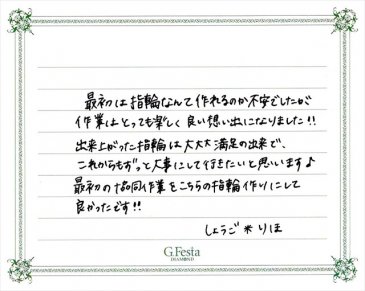 最初は指輪なんて作れるのか不安でしたが
作業はとっても楽しく良い想い出になりました!!
出来上がった指輪は大大大満足の出来で、
これからもずっと大事にして行きたいと思います♪
最初の協同作業をこちらの指輪作りにして
良かったです!!
しょうご * りほ
G.Festa
DIAMOND